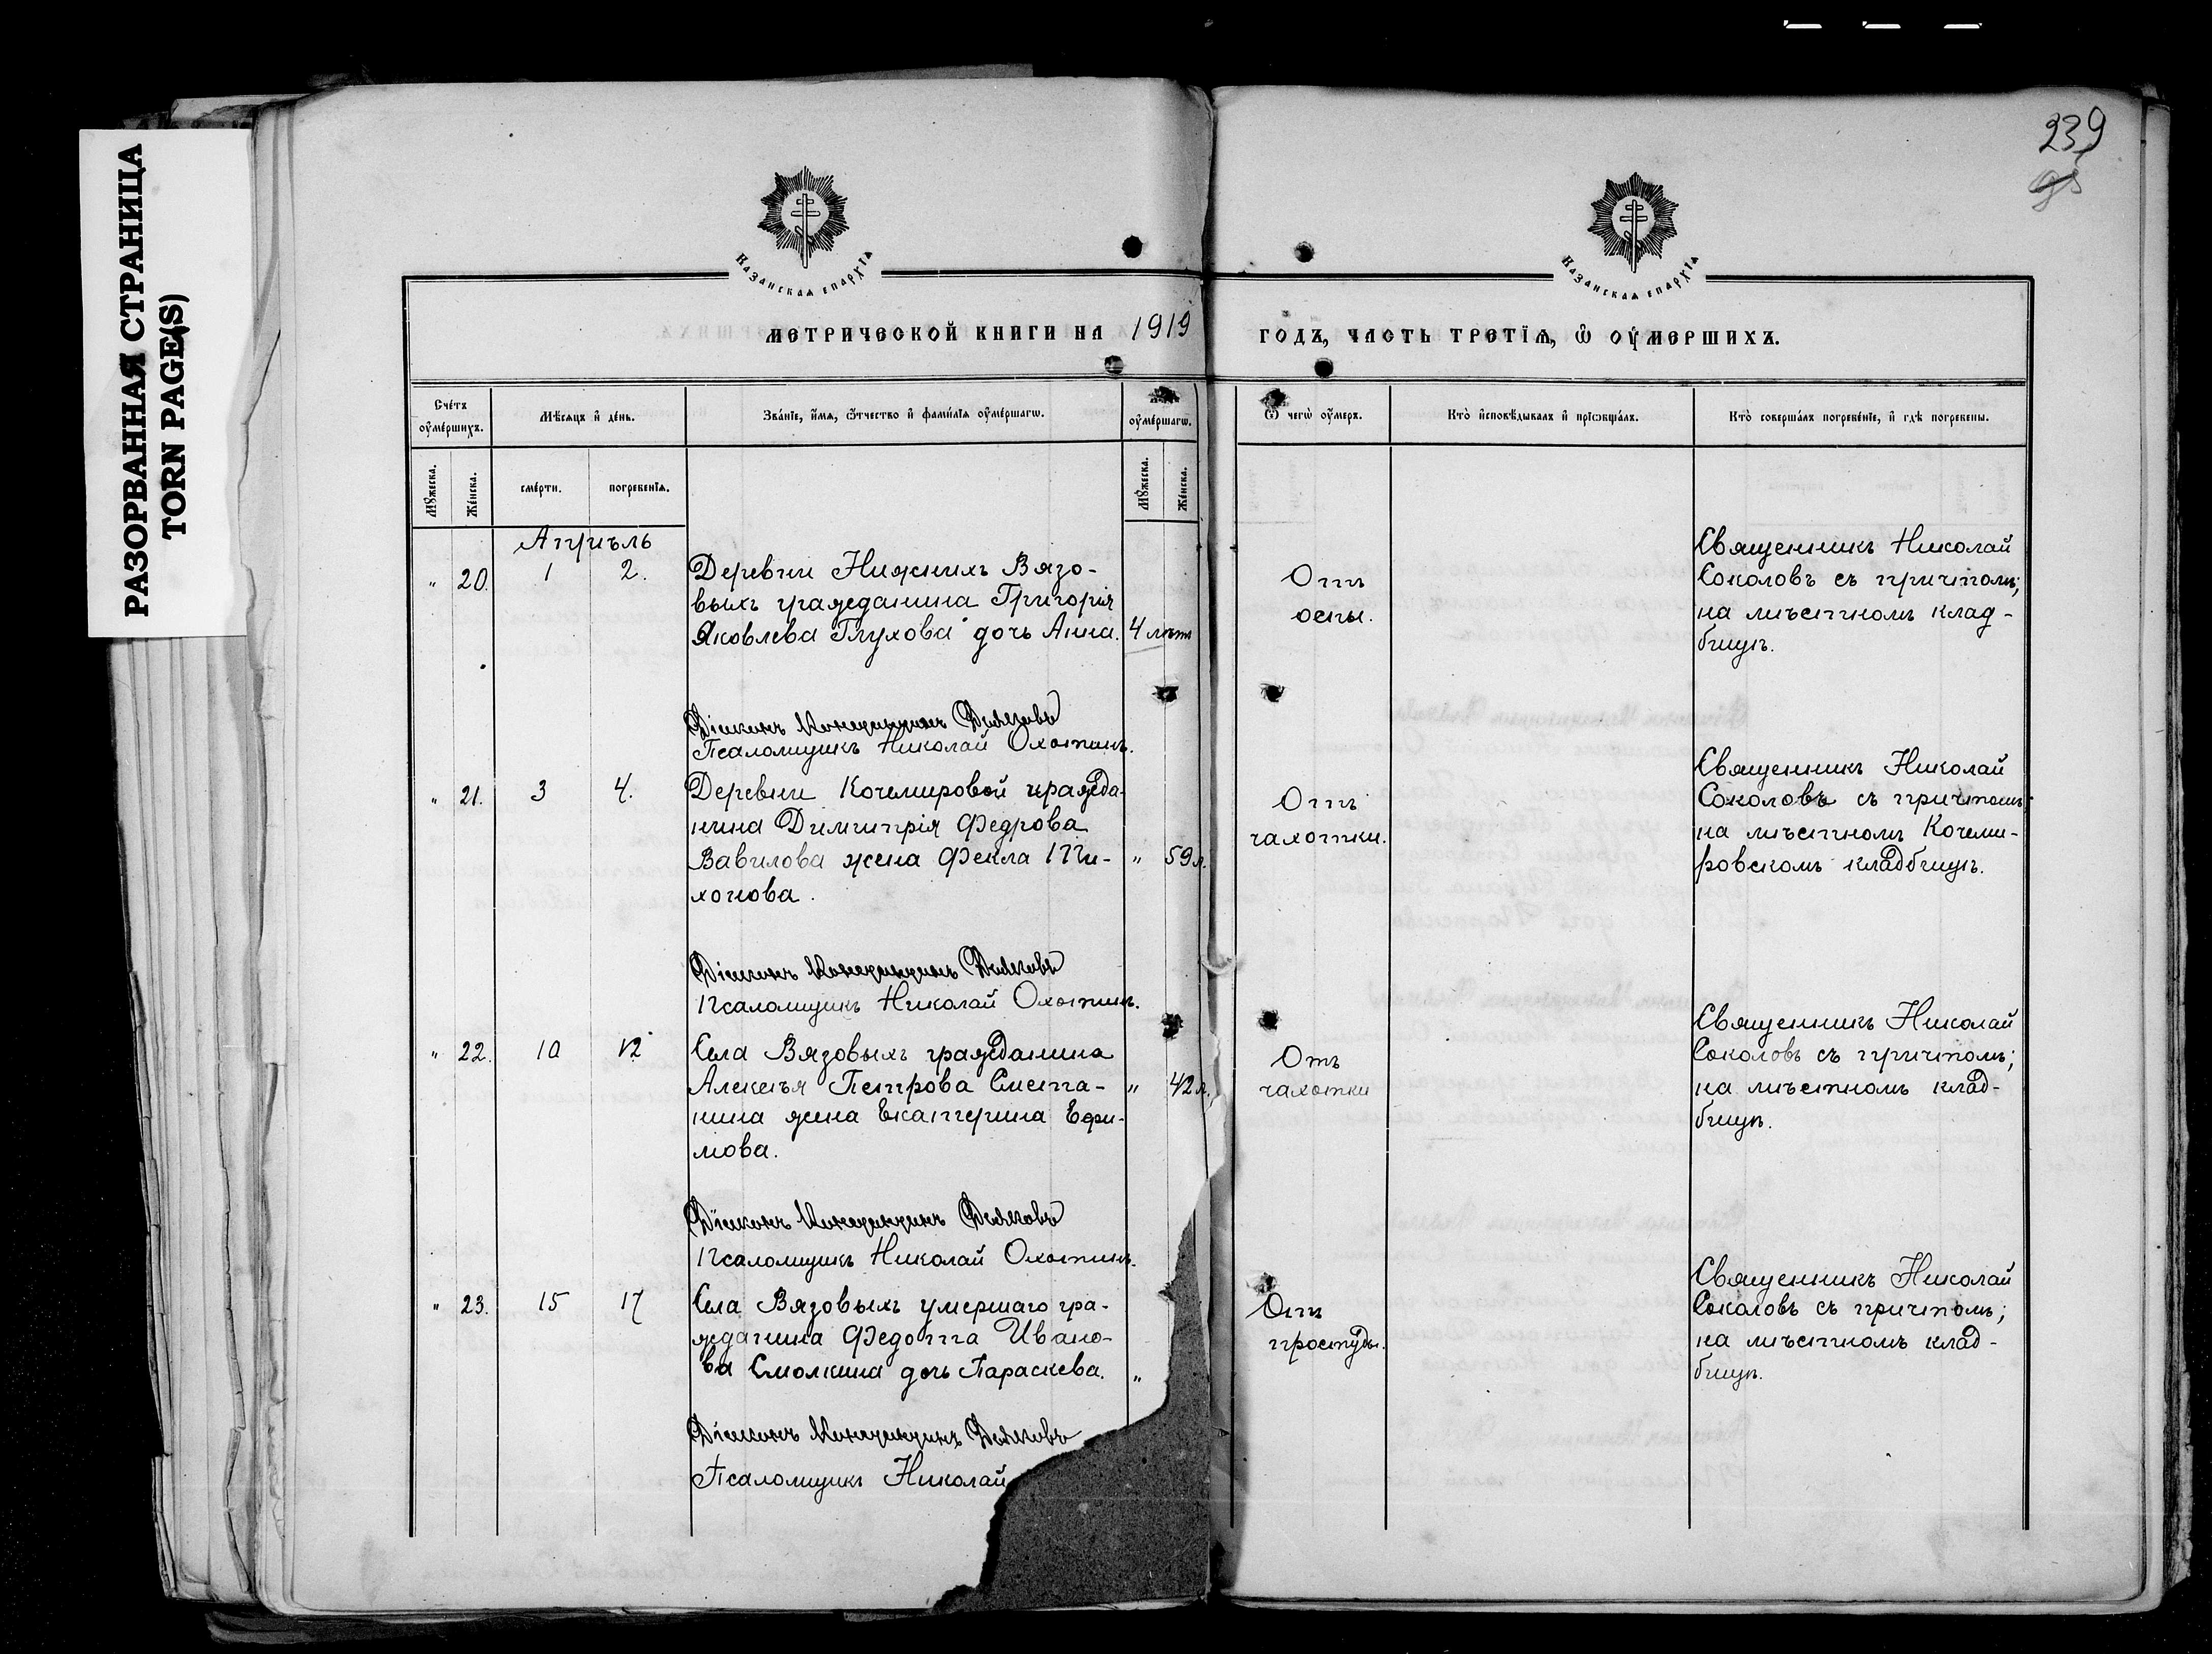 РАЗОРВАННАЯ СТРАНИЦА
TORN PAGE(S)
239
КАЗАНСКАЯ ЕПАРХІЯ
КАЗАНСКАЯ ЕПАРХІЯ
МЕТРИЧЕСКОЙ КНИГИ НА 1919
ГОДЪ, ЧАСТЬ ТРЕТІѦ, Ѡ ОУМЕРШИХЪ.
Счетъ оумершихъ.
Мѣсяцъ и день.
Званіе, имя, ѿчество и фамилія оумершагѡ.
оумершагѡ.
Ѿ чегѡ оумеръ.
Кто исповѣдывалъ и пріѡбщалъ.
Кто совершалъ погребеніе, и гдѣ погребены.
Мужеска.
Женска.
смерти.
погребенія.
Мужеска.
Женска.
Апрѣль
" 20. 1 2.
Деревни Нижнихъ Вязо-
выхъ гражданина Григорія
Яковлева Глухова дочь Анна. 4 лѣтъ
Отъ
оспы.
Священникъ Николай
Соколовъ съ причтомъ;
на мѣстномъ клад-
бищѣ.
Діаконъ
Псаломщикъ Николай Охотинъ.
" 21. 3 4.
Деревни Кочемировой гражда-
нина Димитрія Федрова
Вавилова жена Фекла Ти- " 59 л.
хонова.
Отъ
чахотки.
Священникъ Николай
Соколовъ съ причтомъ;
на мѣстномъ Кочеми-
ровскомъ кладбищѣ.
Діаконъ
Псаломщикъ Николай Охотинъ.
" 22. 10 12
Села Вязовыхъ гражданина
Алексѣя Петрова Смета- " 42 л.
нина жена Екатерина Ефи-
мова.
Отъ
чахотки
Священникъ Николай
Соколовъ съ причтомъ;
на мѣстномъ клад-
бищѣ.
Діаконъ
Псаломщикъ Николай Охотинъ.
" 23. 15 17
Села Вязовыхъ умершаго гра-
жданина Федота Ивано-
ва Смолкина дочь Параскева. "
Отъ
простуды.
Священникъ Николай
Соколовъ съ причтомъ;
на мѣстномъ клад-
бищѣ.
Діаконъ
Псаломщикъ Николай